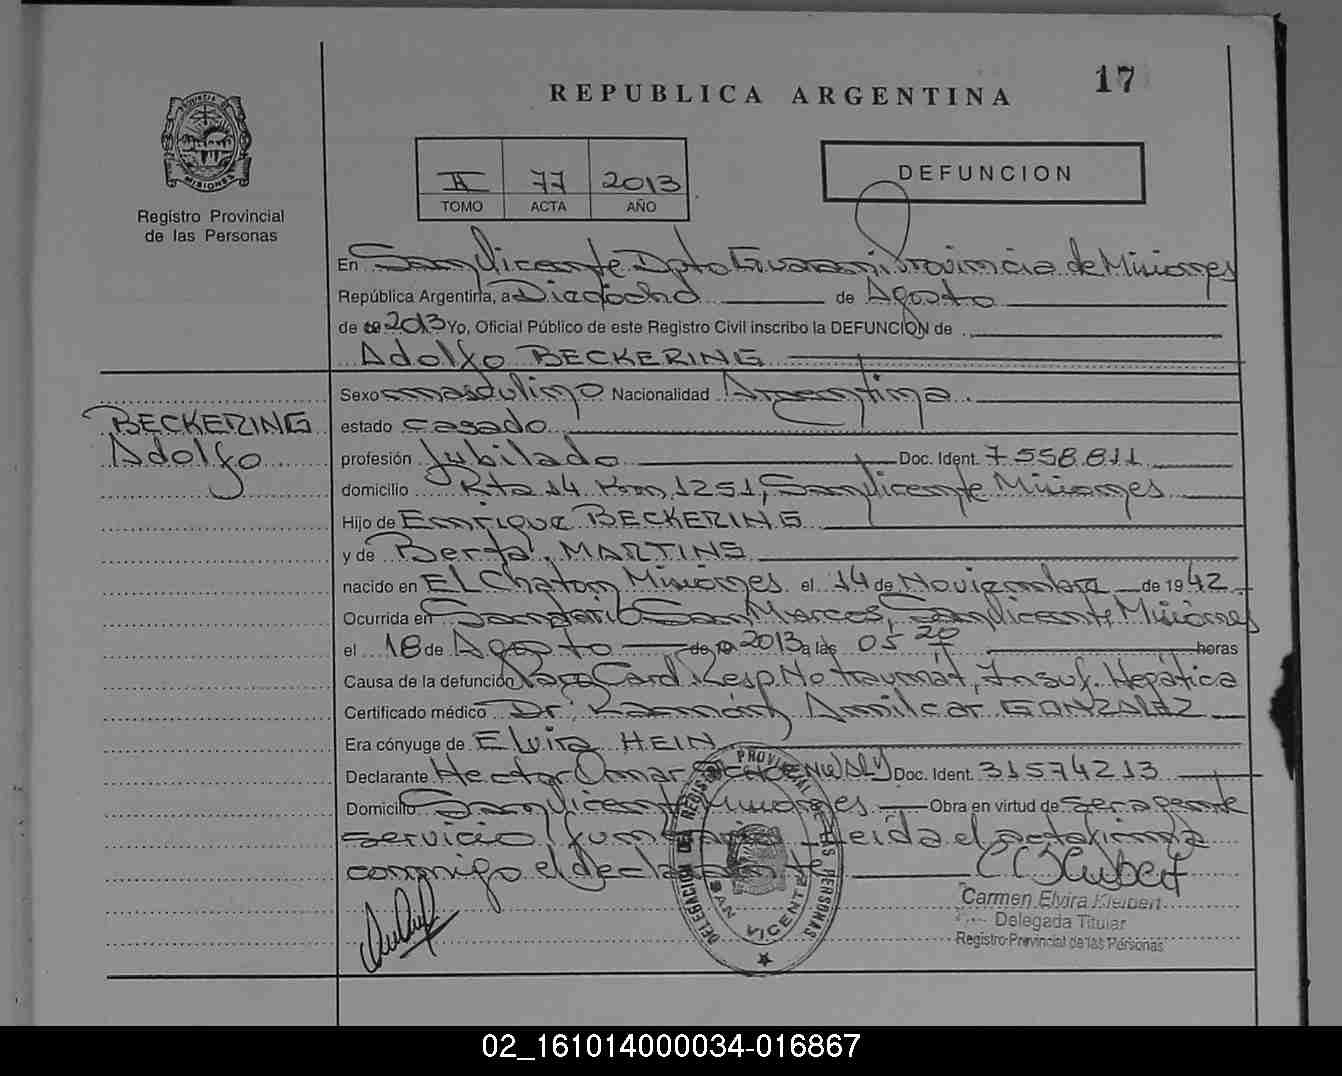 17
REPUBLICA ARGENTINA
PROVINCIA DE
MISIONES
Registro Provincial
de las Personas
II 77 2013
TOMO ACTA AÑO
DEFUNCION
En San Vicente Dpto Guarani Provincia de Misiones
República Argentina, a Dieciocho de Agosto
de 2013 Yo, Oficial Público de este Registro Civil inscribo la DEFUNCION de
Adolfo BECKERING
BECKERING
Adolfo
Sexo masculino Nacionalidad Argentina
estado casado
profesión Jubilado Doc. Ident. 7558.811
domicilio Rta 14 Km 1251, San Vicente Misiones
Hijo de Enrique BECKERING
y de Berta MARTINS
nacido en EL Chaton Misiones el 14 de Noviembre de 1942
Ocurrida en Sanatorio San Marcos, San Vicente Misiones
el 18 de Agosto de 2013 a las 05 20 horas
Causa de la defunción Paro Card Resp No traumát, Insuf. Hepática
Certificado médico Dr. Ramón Amilcar GONZALEZ
Era cónyuge de Elvira HEIN
Declarante Hector Omar Doc. Ident. 31574213
Domicilio San Vicente Misiones Obra en virtud de ser agente
servicio funerario Leída el acta firma
conmigo el declarante
DELEGACION DEL REGISTRO PROVINCIAL DE LAS PERSONAS
SAN VICENTE
Carmen Elvira Kleibert
Delegada Titular
Registro Provincial de las Personas
02_161014000034-016867